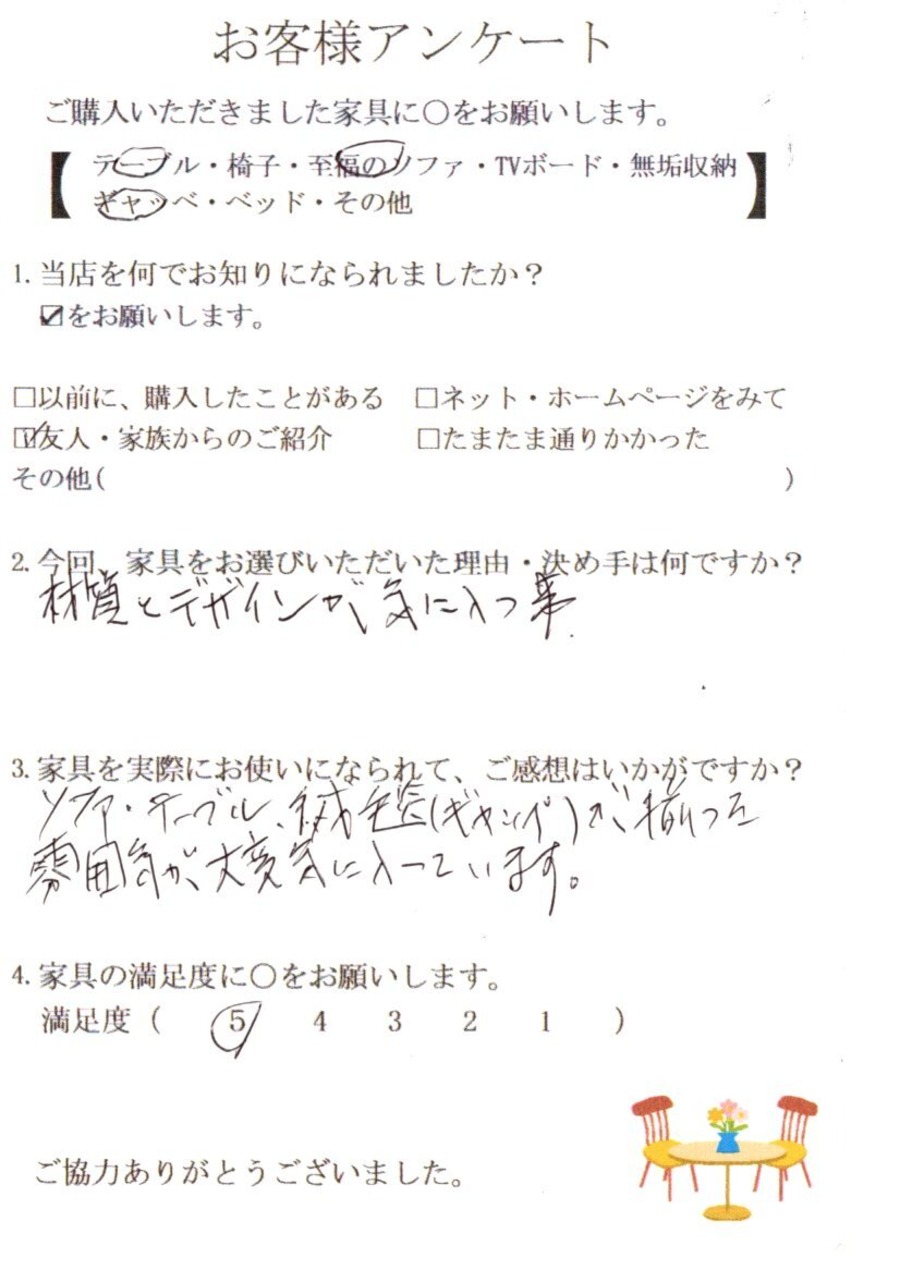 お客様アンケート
ご購入いただきました家具に○をお願いします。
【テーブル・椅子・至福のソファ・TVボード・無垢収納
ギャッベ・ベッド・その他】
1. 当店を何でお知りになられましたか？
☑をお願いします。
□以前に、購入したことがある　□ネット・ホームページをみて
☑友人・家族からのご紹介　□たまたま通りかかった
その他(　)
2. 今回、家具をお選びいただいた理由・決め手は何ですか？
材質とデザインが、気に入つ事.
3. 家具を実際にお使いになられて、ご感想はいかがですか？
ソファ・テーブル、(ギャッペ)が、揃った
雰囲気が、大変気に入っています。
4. 家具の満足度に○をお願いします。
満足度（　5　4　3　2　1　）
ご協力ありがとうございました。